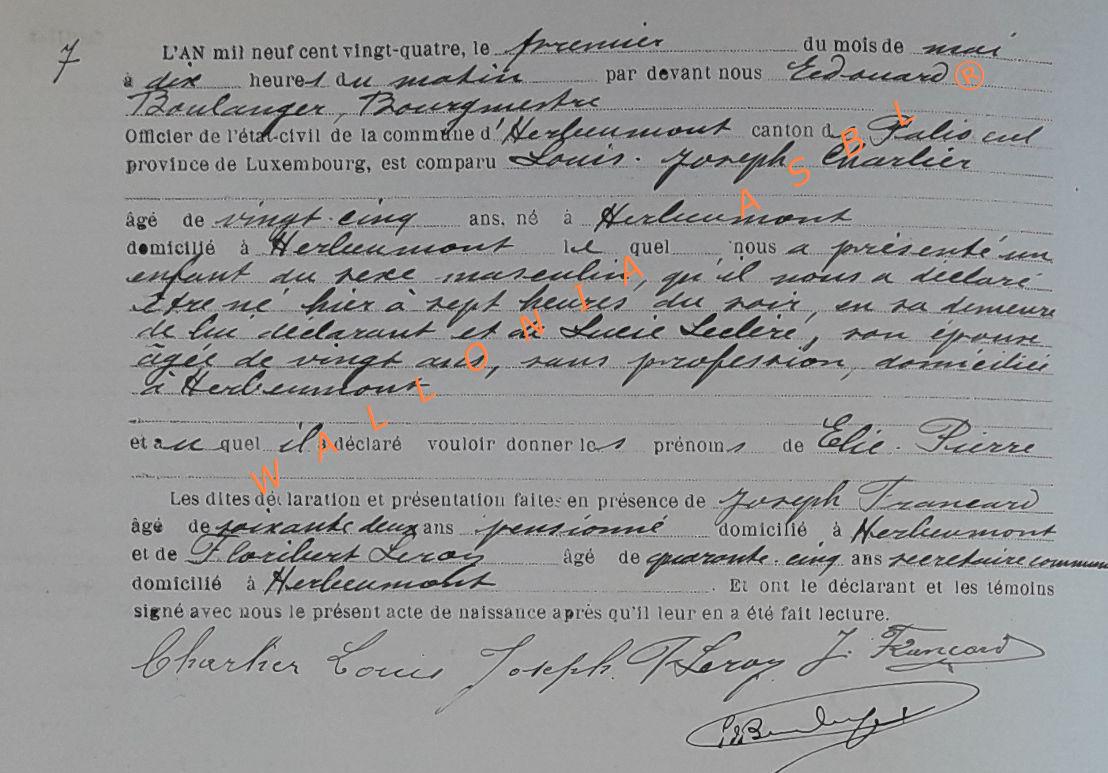 7
L'AN mil neuf cent vingt-quatre, le premier du mois de mai
à dix heures du matin par devant nous Eedouard ®
Boulanger, Bourgmestre
Officier de l'état-civil de la commune d'Herbeumont canton de Paliseul
province de Luxembourg, est comparu Louis-Joseph Charlier
âgé de vingt-cinq ans, né à Herbeumont
domicilié à Herbeumont lequel nous a présenté un
enfant du sexe masculin, qu'il nous a déclaré
être né hier à sept heures du soir, en sa demeure
de lui déclarant et de Lucie Lecleré, son épouse
âgée de vingt ans, sans profession, domiciliée
à Herbeumont
et au quel il a déclaré vouloir donner les prénoms de Elie-Pierre
Les dites déclaration et présentation faites en présence de Joseph Francard
âgé de soixante deux ans pensionné domicilié à Herbeumont
et de Floribert Leroy âgé de quarante-cinq ans secrétaire commun
domicilié à Herbeumont. Et ont le déclarant et les témoins
signé avec nous le présent acte de naissance après qu'il leur en a été fait lecture.
Charlier Louis Joseph. F Leroy J. Francard
WALLONIA ASBL